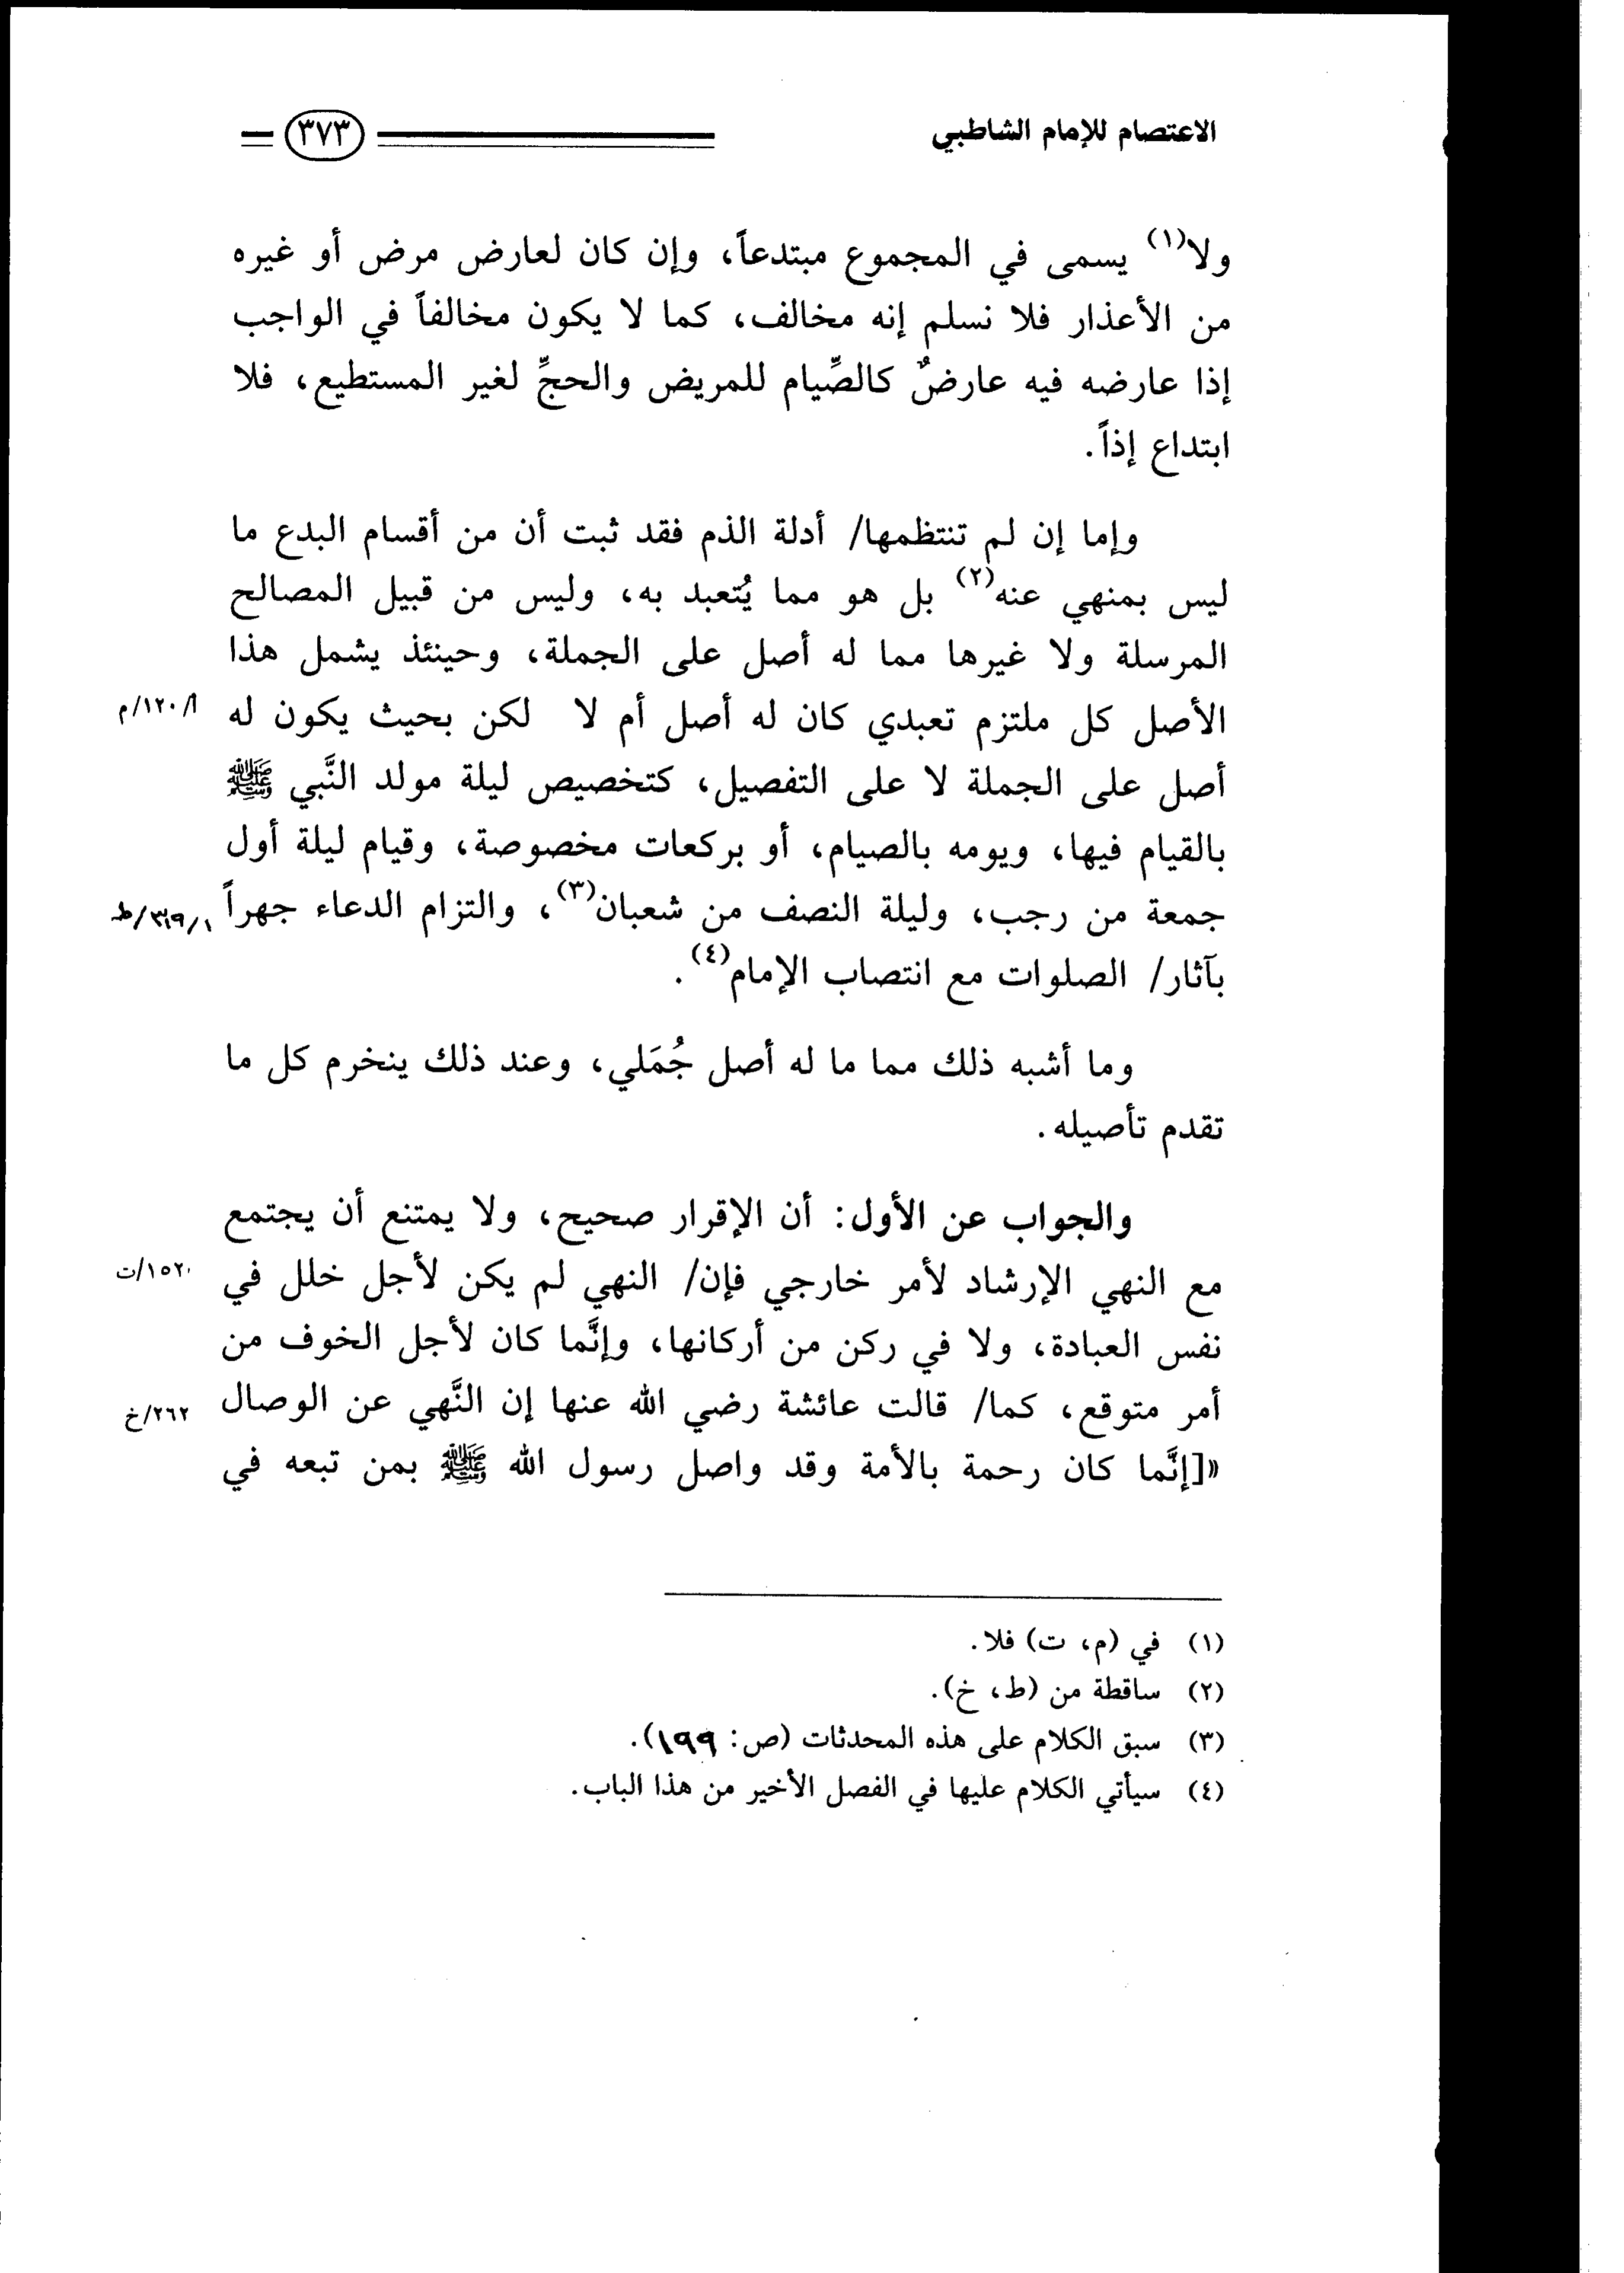 الاعتصام للإمام الشاطبي ٣٧٣
ولا(١) يسمى في المجموع مبتدعاً، وإن كان لعارض مرض أو غيره
من الأعذار فلا نسلم إنه مخالف، كما لا يكون مخالفاً في الواجب
إذا عارضه فيه عارضٌ كالصِّيام للمريض والحجِّ لغير المستطيع، فلا
ابتداع إذاً.
وإما إن لم تنتظمها/ أدلة الذم فقد ثبت أن من أقسام البدع ما
ليس بمنهي عنه(٢) بل هو مما يُتعبد به، وليس من قبيل المصالح
المرسلة ولا غيرها مما له أصل على الجملة، وحينئذ يشمل هذا
الأصل كل ملتزم تعبدي كان له أصل أم لا لكن بحيث يكون له
أ/١٢٠/م
أصل على الجملة لا على التفصيل، كتخصيص ليلة مولد النَّبي ﷺ
بالقيام فيها، ويومه بالصيام، أو بركعات مخصوصة، وقيام ليلة أول
جمعة من رجب، وليلة النصف من شعبان(٣)، والتزام الدعاء جهراً
١/٣٦٩/ط
بآثار/ الصلوات مع انتصاب الإمام(٤).
وما أشبه ذلك مما ما له أصل جُمَلي، وعند ذلك ينخرم كل ما
تقدم تأصيله.
والجواب عن الأول: أن الإقرار صحيح، ولا يمتنع أن يجتمع
مع النهي الإرشاد لأمر خارجي فإن/ النهي لم يكن لأجل خلل في
نفس العبادة، ولا في ركن من أركانها، وإنَّما كان لأجل الخوف من
أمر متوقع، كما/ قالت عائشة رضي الله عنها إن النَّهي عن الوصال
٢٦٢/خ
«[إنَّما كان رحمة بالأمة وقد واصل رسول الله ﷺ بمن تبعه في
(١) في (م، ت) فلا.
(٢) ساقطة من (ط، خ).
(٣) سبق الكلام على هذه المحدثات (ص: ١٩٩).
(٤) سيأتي الكلام عليها في الفصل الأخير من هذا الباب.